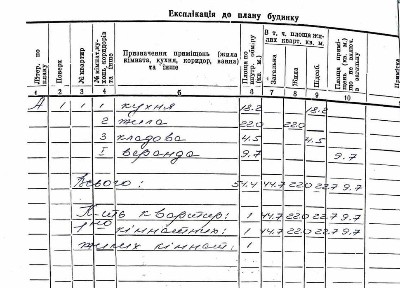 Експлікація до плану будинку
Літер. по плану
Поверх
№ квартир
Призначення приміщень (жила кімната, кухня, коридор, ванна) та інше
В т. ч. площа жилих кварт. кв. м.
Загальна
Жила
Підсоб.
1 2 3 4 5 6 7 8 9 10
А 1 1 1 кухня 18.2 18.2
2 жила 22.0 22.0
3 кладова 4.5 4.5
I веранда 9.7 9.7
Всього: 54.4 44.7 22.0 22.7 9.7
К-сть квартир: 1 44.7 22.0 22.7 9.7
1но кімнатних: 1 44.7 22.0 22.7 9.7
жилих кімнат: 1